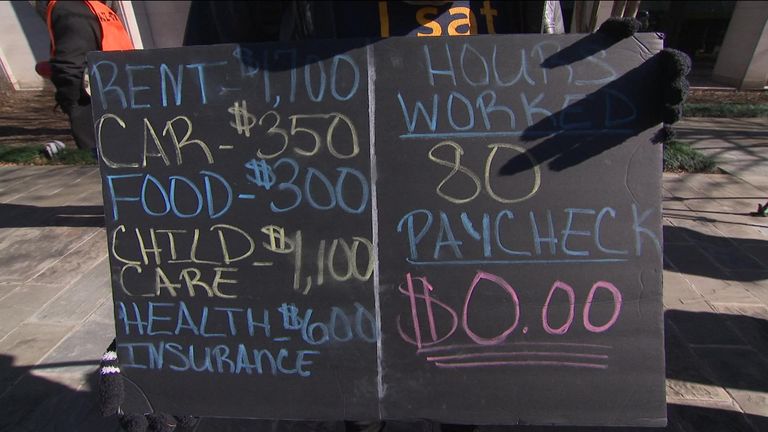 I sat
RENT-$1,700
CAR-$350
FOOD-$300
CHILD-$1,100
CARE
HEALTH-$600
INSURANCE
HOURS
WORKED
80
PAYCHECK
$0.00